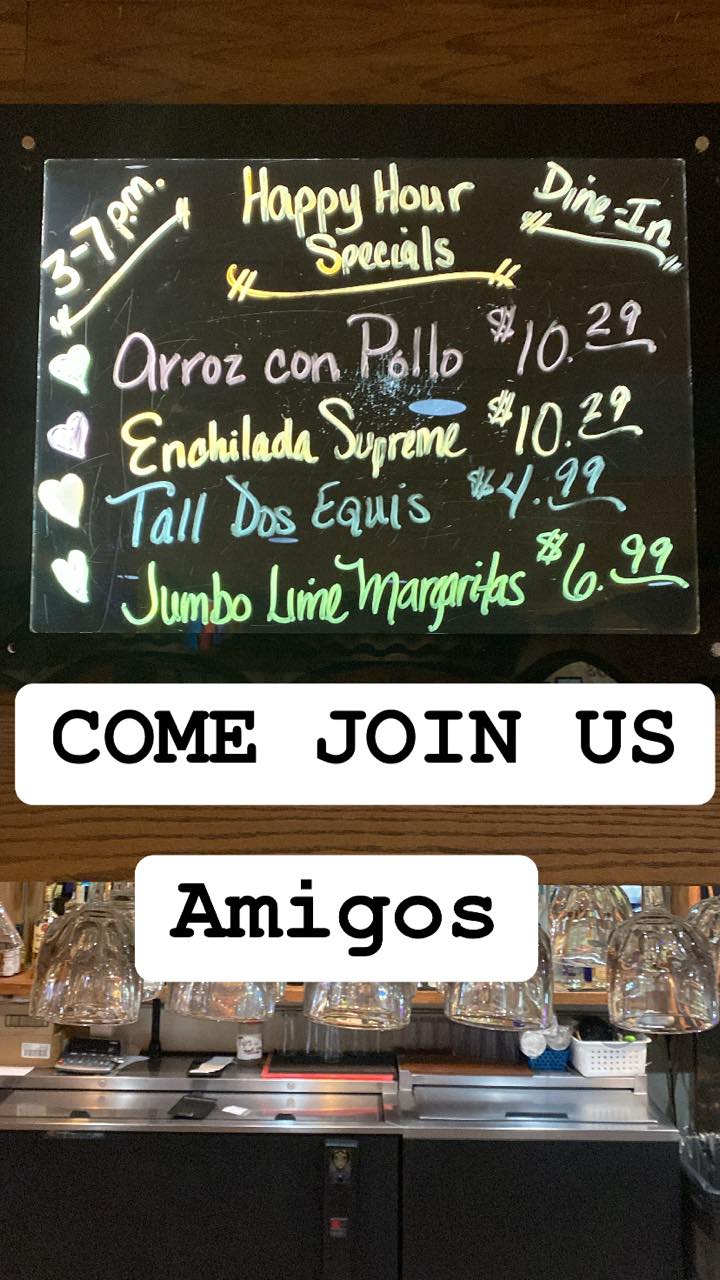 3-7 p.m.
Happy Hour
Specials
Dine-In
Arroz con Pollo $10.29
Enchilada Supreme $10.29
Tall Dos Equis $4.99
Jumbo Lime Margaritas $6.99
COME JOIN US
Amigos